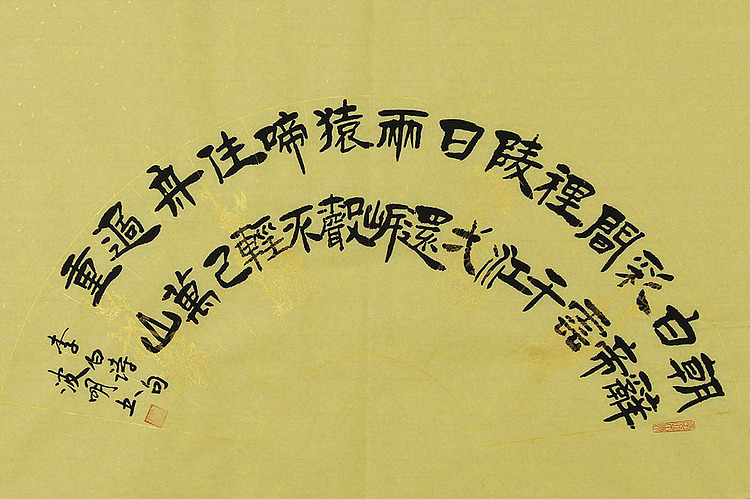 朝辭
白帝
彩雲
間千
裡江
陵弌
日還
兩岸
猿聲
啼不
住輕
舟已
過萬
重山
李白詩句
波明书